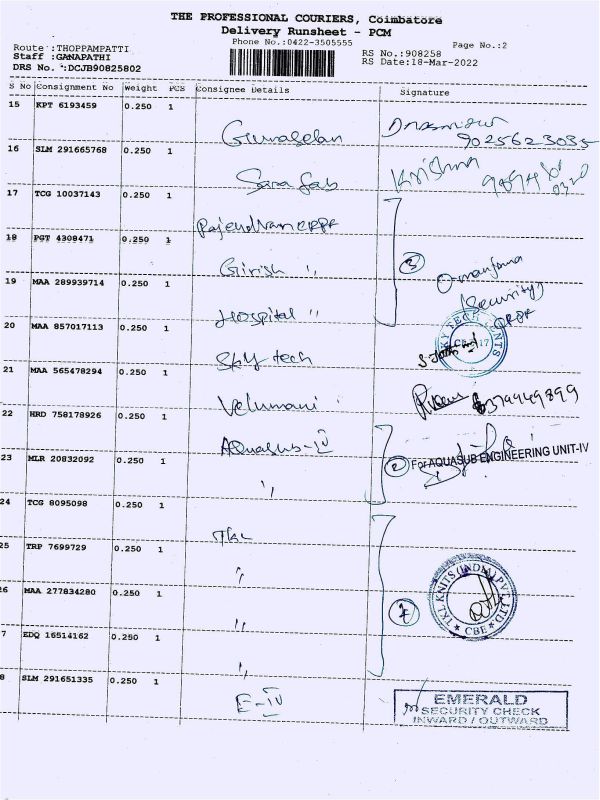 THE PROFESSIONAL COURIERS, Coimbatore
Delivery Runsheet - PCM
Phone No.:0422-3505555
Page No.:2
Route :THOPPAMPATTI
RS No.:908258
Staff :GANAPATHI
RS Date:18-Mar-2022
DRS No. :DCJB90825802
S No Consignment No Weight PCS Consignee Details Signature
15 KPT 6193459 0.250 1
9025623035
16 SLM 291665768 0.250 1
Krishna
17 TCG 10037143 0.250 1
Rajendran CRPF
18 PGT 4308471 0.250 1
Girish "
3
19 MAA 289939714 0.250 1
Hospital "
(Security)
CRPF
20 MAA 857017113 0.250 1
Sky tech
21 MAA 565478294 0.250 1
Velumani
6379949899
22 HRD 758178926 0.250 1
Aquasub-IV
23 MLR 20832092 0.250 1
"
2
For AQUASUB ENGINEERING UNIT-IV
24 TCG 8095098 0.250 1
TKL
25 TRP 7699729 0.250 1
"
26 MAA 277834280 0.250 1
"
4
TKL KNITS (INDIA) PVT LTD
CBE
7 EDQ 16514162 0.250 1
"
8 SLM 291651335 0.250 1
E-IV
EMERALD
SECURITY CHECK
INWARD / OUTWARD